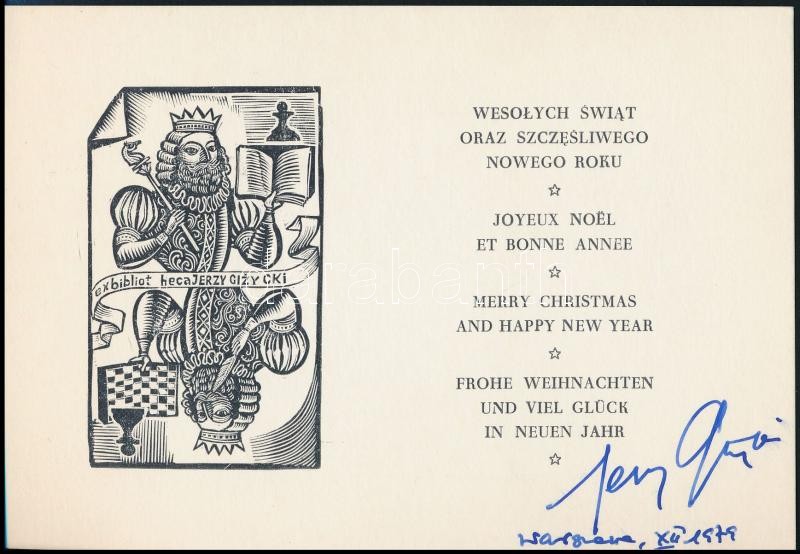 exbibliothecaJERZY GIŻYCKi
WESOŁYCH ŚWIĄT
ORAZ SZCZĘŚLIWEGO
NOWEGO ROKU
JOYEUX NOËL
ET BONNE ANNEE
MERRY CHRISTMAS
AND HAPPY NEW YEAR
FROHE WEIHNACHTEN
UND VIEL GLÜCK
IN NEUEN JAHR
Warszawa, XII 1979